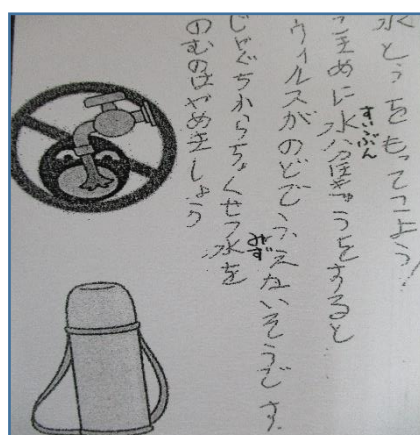 水とうをもってこよう!
こまめに水分ほきゅうをすると
すいぶん
ウィルスがのどでふえないそうです。
じゃぐちからちょくせつ水を
みず
のむのはやめましょう